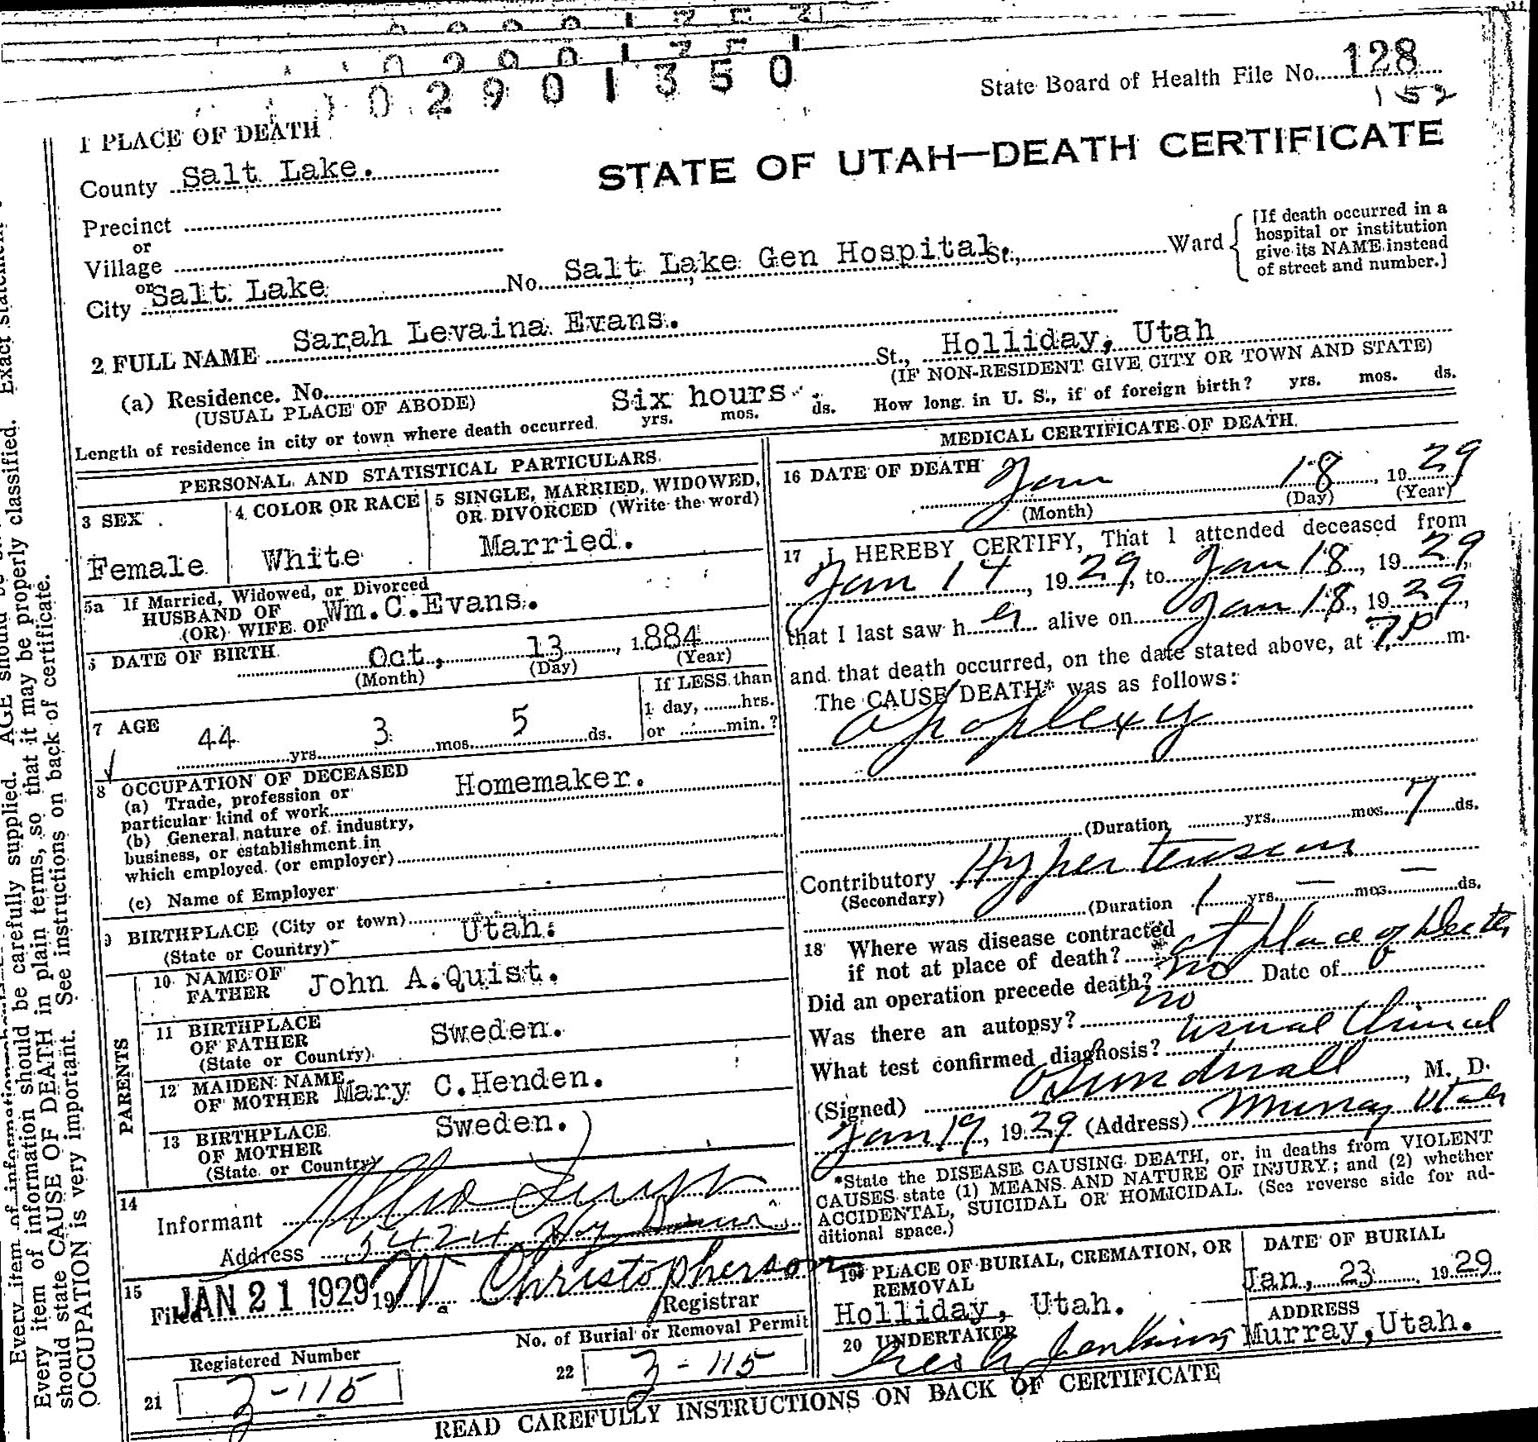 02901350
State Board of Health File No. 128
152
1 PLACE OF DEATH
STATE OF UTAH—DEATH CERTIFICATE
County Salt Lake.
Precinct
or
Village
or
City Salt Lake No. Salt Lake Gen Hospital St., Ward
[If death occurred in a
hospital or institution
give its NAME instead
of street and number.]
2 FULL NAME Sarah Levaina Evans.
(a) Residence. No. St., Holliday, Utah
(USUAL PLACE OF ABODE) (IF NON-RESIDENT GIVE CITY OR TOWN AND STATE)
Length of residence in city or town where death occurred Six hours. yrs. mos. ds. How long in U. S., if of foreign birth? yrs. mos. ds.
PERSONAL AND STATISTICAL PARTICULARS.
3 SEX
Female
4 COLOR OR RACE
White
5 SINGLE, MARRIED, WIDOWED,
OR DIVORCED (Write the word)
Married.
5a If Married, Widowed, or Divorced
HUSBAND OF
(OR) WIFE OF Wm.C.Evans.
DATE OF BIRTH Oct, 13, 1884
(Month) (Day) (Year)
7 AGE 44 yrs. 3 mos. 5 ds.
If LESS than
1 day, hrs.
or min.?
8 OCCUPATION OF DECEASED
(a) Trade, profession or
particular kind of work Homemaker.
(b) General nature of industry,
business, or establishment in
which employed (or employer)
(c) Name of Employer
9 BIRTHPLACE (City or town) Utah.
(State or Country)
PARENTS
10 NAME OF
FATHER John A.Quist.
11 BIRTHPLACE
OF FATHER Sweden.
(State or Country)
12 MAIDEN NAME
OF MOTHER Mary C.Henden.
13 BIRTHPLACE
OF MOTHER Sweden.
(State or Country)
14
Informant
Address 5424
15
Filed JAN 21 1929 19 W. Christopherson
Registrar
Registered Number
21 3-115
No. of Burial or Removal Permit
22 3-115
MEDICAL CERTIFICATE OF DEATH.
16 DATE OF DEATH Jan 18, 1929
(Month) (Day) (Year)
17 I HEREBY CERTIFY, That I attended deceased from
Jan 14, 1929, to Jan 18, 1929,
that I last saw her alive on Jan 18, 1929,
and that death occurred, on the date stated above, at 7 P m.
The CAUSE/DEATH* was as follows:
Apoplexy
(Duration yrs. mos. 7 ds.
Contributory Hypertension
(Secondary)
(Duration 1 yrs. — mos. — ds.
18 Where was disease contracted
if not at place of death? at place of Death
Did an operation precede death? no Date of
Was there an autopsy? no
What test confirmed diagnosis? usual Clinical
(Signed) Sundwall, M. D.
Jan 19, 1929 (Address) Murray Utah
*State the DISEASE CAUSING DEATH, or, in deaths from VIOLENT
CAUSES state (1) MEANS AND NATURE OF INJURY; and (2) whether
ACCIDENTAL, SUICIDAL OR HOMICIDAL. (See reverse side for ad-
ditional space.)
19 PLACE OF BURIAL, CREMATION, OR
REMOVAL
Holliday, Utah.
DATE OF BURIAL
Jan, 23 1929
20 UNDERTAKER Jenkins
ADDRESS
Murray, Utah.
READ CAREFULLY INSTRUCTIONS ON BACK OF CERTIFICATE
Every item of information should be carefully supplied. AGE should be
should state CAUSE OF DEATH in plain terms, so that it may be properly classified. Exact statement
OCCUPATION is very important. See instructions on back of certificate.